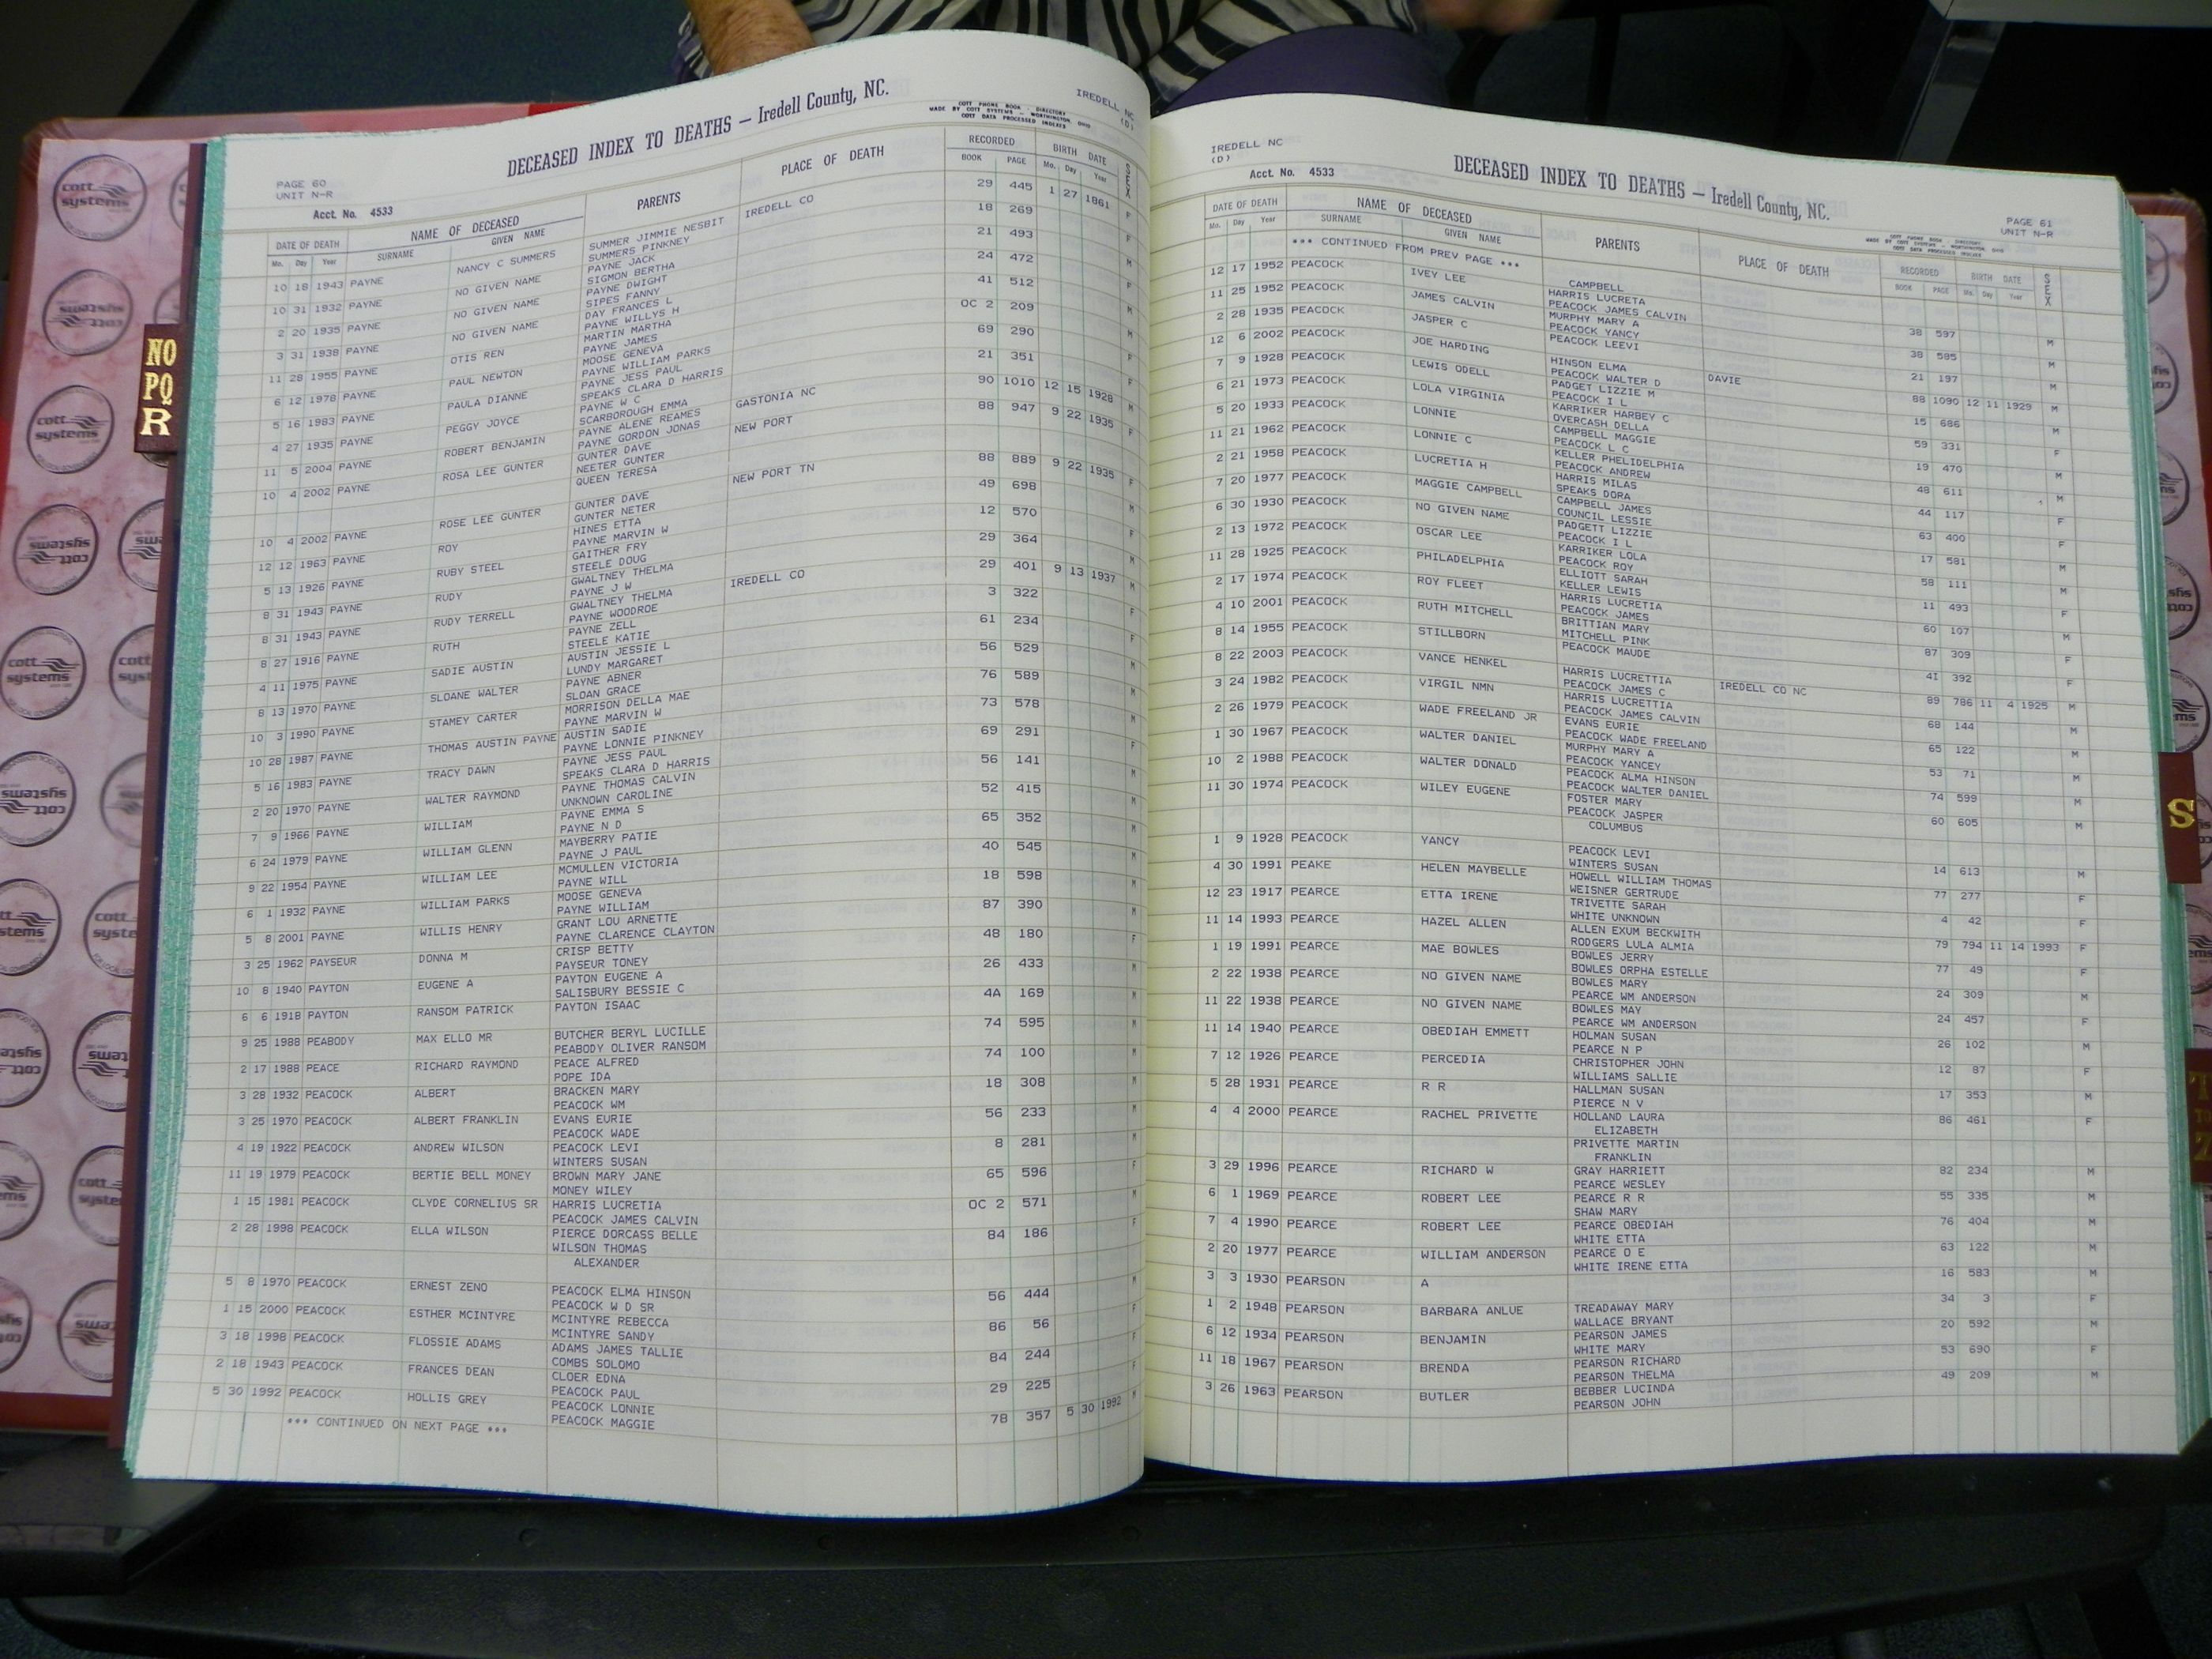 DECEASED INDEX TO DEATHS — Iredell County, NC.
COTT PHONE BOOK - DIRECTORY
MADE BY COTT SYSTEMS — WORTHINGTON, OHIO
COTT DATA PROCESSED INDEXES
IREDELL NC
(D)
PAGE 60
UNIT N-R
Acct. No. 4533
DATE OF DEATH NAME OF DECEASED PARENTS PLACE OF DEATH RECORDED BIRTH DATE SEX
Mo. Day Year SURNAME GIVEN NAME BOOK PAGE Mo. Day Year
10 18 1943 PAYNE NANCY C SUMMERS SUMMER JIMMIE NESBIT IREDELL CO 29 445 1 27 1861 F
SUMMERS PINKNEY
10 31 1932 PAYNE NO GIVEN NAME PAYNE JACK 18 269 F
SIGMON BERTHA
2 20 1935 PAYNE NO GIVEN NAME PAYNE DWIGHT 21 493 M
SIPES FANNY
3 31 1938 PAYNE NO GIVEN NAME DAY FRANCES L 24 472 F
PAYNE WILLYS H
11 28 1955 PAYNE OTIS REN MARTIN MARTHA 41 512 M
PAYNE JAMES
6 12 1978 PAYNE PAUL NEWTON MOOSE GENEVA OC 2 209 M
PAYNE WILLIAM PARKS
5 16 1983 PAYNE PAULA DIANNE PAYNE JESS PAUL 69 290 F
SPEAKS CLARA D HARRIS
4 27 1935 PAYNE PEGGY JOYCE PAYNE W C 21 351 F
SCARBOROUGH EMMA
11 5 2004 PAYNE ROBERT BENJAMIN PAYNE ALENE REAMES GASTONIA NC 90 1010 12 15 1928 M
PAYNE GORDON JONAS
10 4 2002 PAYNE ROSA LEE GUNTER GUNTER DAVE NEW PORT 88 947 9 22 1935 F
NEETER GUNTER
QUEEN TERESA
10 4 2002 PAYNE ROSE LEE GUNTER GUNTER DAVE NEW PORT TN 88 889 9 22 1935 F
GUNTER NETER
12 12 1963 PAYNE ROY HINES ETTA 49 698 M
PAYNE MARVIN W
5 13 1926 PAYNE RUBY STEEL GAITHER FRY 12 570 F
STEELE DOUG
8 31 1943 PAYNE RUDY GWALTNEY THELMA 29 364 M
PAYNE J W
8 31 1943 PAYNE RUDY TERRELL GWALTNEY THELMA IREDELL CO 29 401 9 13 1937 M
PAYNE WOODROE
8 27 1916 PAYNE RUTH PAYNE ZELL 3 322 F
STEELE KATIE
4 11 1975 PAYNE SADIE AUSTIN AUSTIN JESSIE L 61 234 F
LUNDY MARGARET
8 13 1970 PAYNE SLOANE WALTER PAYNE ABNER 56 529 M
SLOAN GRACE
10 3 1990 PAYNE STAMEY CARTER MORRISON DELLA MAE 76 589 M
PAYNE MARVIN W
10 28 1987 PAYNE THOMAS AUSTIN PAYNE AUSTIN SADIE 73 578 M
PAYNE LONNIE PINKNEY
5 16 1983 PAYNE TRACY DAWN PAYNE JESS PAUL 69 291 F
SPEAKS CLARA D HARRIS
2 20 1970 PAYNE WALTER RAYMOND PAYNE THOMAS CALVIN 56 141 M
UNKNOWN CAROLINE
7 9 1966 PAYNE WILLIAM PAYNE EMMA S 52 415 M
PAYNE N D
6 24 1979 PAYNE WILLIAM GLENN MAYBERRY PATIE 65 352 M
PAYNE J PAUL
9 22 1954 PAYNE WILLIAM LEE MCMULLEN VICTORIA 40 545 M
PAYNE WILL
6 1 1932 PAYNE WILLIAM PARKS MOOSE GENEVA 18 598 M
PAYNE WILLIAM
5 8 2001 PAYNE WILLIS HENRY GRANT LOU ARNETTE 87 390 M
PAYNE CLARENCE CLAYTON
3 25 1962 PAYSEUR DONNA M CRISP BETTY 48 180 F
PAYSEUR TONEY
10 8 1940 PAYTON EUGENE A PAYTON EUGENE A 26 433 M
SALISBURY BESSIE C
6 6 1918 PAYTON RANSOM PATRICK PAYTON ISAAC 4A 169 M
9 25 1988 PEABODY MAX ELLO MR BUTCHER BERYL LUCILLE 74 595 M
PEABODY OLIVER RANSOM
2 17 1988 PEACE RICHARD RAYMOND PEACE ALFRED 74 100 M
POPE IDA
3 28 1932 PEACOCK ALBERT BRACKEN MARY 18 308 M
PEACOCK WM
3 25 1970 PEACOCK ALBERT FRANKLIN EVANS EURIE 56 233 M
PEACOCK WADE
4 19 1922 PEACOCK ANDREW WILSON PEACOCK LEVI 8 281 M
WINTERS SUSAN
11 19 1979 PEACOCK BERTIE BELL MONEY BROWN MARY JANE 65 596 F
MONEY WILEY
1 15 1981 PEACOCK CLYDE CORNELIUS SR HARRIS LUCRETIA OC 2 571 M
PEACOCK JAMES CALVIN
2 28 1998 PEACOCK ELLA WILSON PIERCE DORCASS BELLE 84 186 F
WILSON THOMAS
ALEXANDER
5 8 1970 PEACOCK ERNEST ZENO PEACOCK ELMA HINSON 56 444 M
PEACOCK W D SR
1 15 2000 PEACOCK ESTHER MCINTYRE MCINTYRE REBECCA 86 56 F
MCINTYRE SANDY
3 18 1998 PEACOCK FLOSSIE ADAMS ADAMS JAMES TALLIE 84 244 F
COMBS SOLOMO
2 18 1943 PEACOCK FRANCES DEAN CLOER EDNA 29 225 F
PEACOCK PAUL
5 30 1992 PEACOCK HOLLIS GREY PEACOCK LONNIE 78 357 5 30 1992 M
PEACOCK MAGGIE
*** CONTINUED ON NEXT PAGE ***
IREDELL NC
(D)
Acct. No. 4533
DECEASED INDEX TO DEATHS — Iredell County, NC.
PAGE 61
UNIT N-R
DATE OF DEATH NAME OF DECEASED PARENTS PLACE OF DEATH RECORDED BIRTH DATE SEX
Mo. Day Year SURNAME GIVEN NAME BOOK PAGE Mo. Day Year
*** CONTINUED FROM PREV PAGE ***
12 17 1952 PEACOCK IVEY LEE CAMPBELL 38 597 M
HARRIS LUCRETA
11 25 1952 PEACOCK JAMES CALVIN PEACOCK JAMES CALVIN 38 585 M
MURPHY MARY A
PEACOCK YANCY
2 28 1935 PEACOCK JASPER C PEACOCK LEEVI 21 197 M
12 6 2002 PEACOCK JOE HARDING HINSON ELMA DAVIE 88 1090 12 11 1929 M
PEACOCK WALTER D
7 9 1928 PEACOCK LEWIS ODELL PADGET LIZZIE M 15 686 M
PEACOCK I L
6 21 1973 PEACOCK LOLA VIRGINIA KARRIKER HARBEY C 59 331 F
OVERCASH DELLA
5 20 1933 PEACOCK LONNIE CAMPBELL MAGGIE 19 470 M
PEACOCK L C
11 21 1962 PEACOCK LONNIE C KELLER PHELIDELPHIA 48 611 M
PEACOCK ANDREW
2 21 1958 PEACOCK LUCRETIA H HARRIS MILAS 44 117 F
SPEAKS DORA
7 20 1977 PEACOCK MAGGIE CAMPBELL CAMPBELL JAMES 63 400 F
COUNCIL LESSIE
6 30 1930 PEACOCK NO GIVEN NAME PADGETT LIZZIE 17 581 M
PEACOCK I L
2 13 1972 PEACOCK OSCAR LEE KARRIKER LOLA 58 111 M
PEACOCK ROY
11 28 1925 PEACOCK PHILADELPHIA ELLIOTT SARAH 11 493 F
KELLER LEWIS
2 17 1974 PEACOCK ROY FLEET HARRIS LUCRETIA 60 107 M
PEACOCK JAMES
4 10 2001 PEACOCK RUTH MITCHELL BRITTIAN MARY 87 309 F
MITCHELL PINK
8 14 1955 PEACOCK STILLBORN PEACOCK MAUDE 41 392 F
8 22 2003 PEACOCK VANCE HENKEL HARRIS LUCRETTIA IREDELL CO NC 89 786 11 4 1925 M
PEACOCK JAMES C
3 24 1982 PEACOCK VIRGIL NMN HARRIS LUCRETTIA 68 144 M
PEACOCK JAMES CALVIN
2 26 1979 PEACOCK WADE FREELAND JR EVANS EURIE 65 122 M
PEACOCK WADE FREELAND
1 30 1967 PEACOCK WALTER DANIEL MURPHY MARY A 53 71 M
PEACOCK YANCEY
10 2 1988 PEACOCK WALTER DONALD PEACOCK ALMA HINSON 74 599 M
PEACOCK WALTER DANIEL
11 30 1974 PEACOCK WILEY EUGENE FOSTER MARY 60 605 M
PEACOCK JASPER
COLUMBUS
1 9 1928 PEACOCK YANCY PEACOCK LEVI 14 613 M
WINTERS SUSAN
4 30 1991 PEAKE HELEN MAYBELLE HOWELL WILLIAM THOMAS 77 277 F
WEISNER GERTRUDE
12 23 1917 PEARCE ETTA IRENE TRIVETTE SARAH 4 42 F
WHITE UNKNOWN
11 14 1993 PEARCE HAZEL ALLEN ALLEN EXUM BECKWITH 79 794 11 14 1993 F
RODGERS LULA ALMIA
1 19 1991 PEARCE MAE BOWLES BOWLES JERRY 77 49 F
BOWLES ORPHA ESTELLE
2 22 1938 PEARCE NO GIVEN NAME BOWLES MARY 24 309 M
PEARCE WM ANDERSON
11 22 1938 PEARCE NO GIVEN NAME BOWLES MAY 24 457 F
PEARCE WM ANDERSON
11 14 1940 PEARCE OBEDIAH EMMETT HOLMAN SUSAN 26 102 M
PEARCE N P
7 12 1926 PEARCE PERCEDIA CHRISTOPHER JOHN 12 87 F
WILLIAMS SALLIE
5 28 1931 PEARCE R R HALLMAN SUSAN 17 353 M
PIERCE N V
4 4 2000 PEARCE RACHEL PRIVETTE HOLLAND LAURA 86 461 F
ELIZABETH
PRIVETTE MARTIN
FRANKLIN
3 29 1996 PEARCE RICHARD W GRAY HARRIETT 82 234 M
PEARCE WESLEY
6 1 1969 PEARCE ROBERT LEE PEARCE R R 55 335 M
SHAW MARY
7 4 1990 PEARCE ROBERT LEE PEARCE OBEDIAH 76 404 M
WHITE ETTA
2 20 1977 PEARCE WILLIAM ANDERSON PEARCE O E 63 122 M
WHITE IRENE ETTA
3 3 1930 PEARSON A 16 583 M
1 2 1948 PEARSON BARBARA ANLUE TREADAWAY MARY 34 3 F
WALLACE BRYANT
6 12 1934 PEARSON BENJAMIN PEARSON JAMES 20 592 M
WHITE MARY
11 18 1967 PEARSON BRENDA PEARSON RICHARD 53 690 F
PEARSON THELMA
3 26 1963 PEARSON BUTLER BEBBER LUCINDA 49 209 M
PEARSON JOHN
NO
PQ
R
S
cott systems